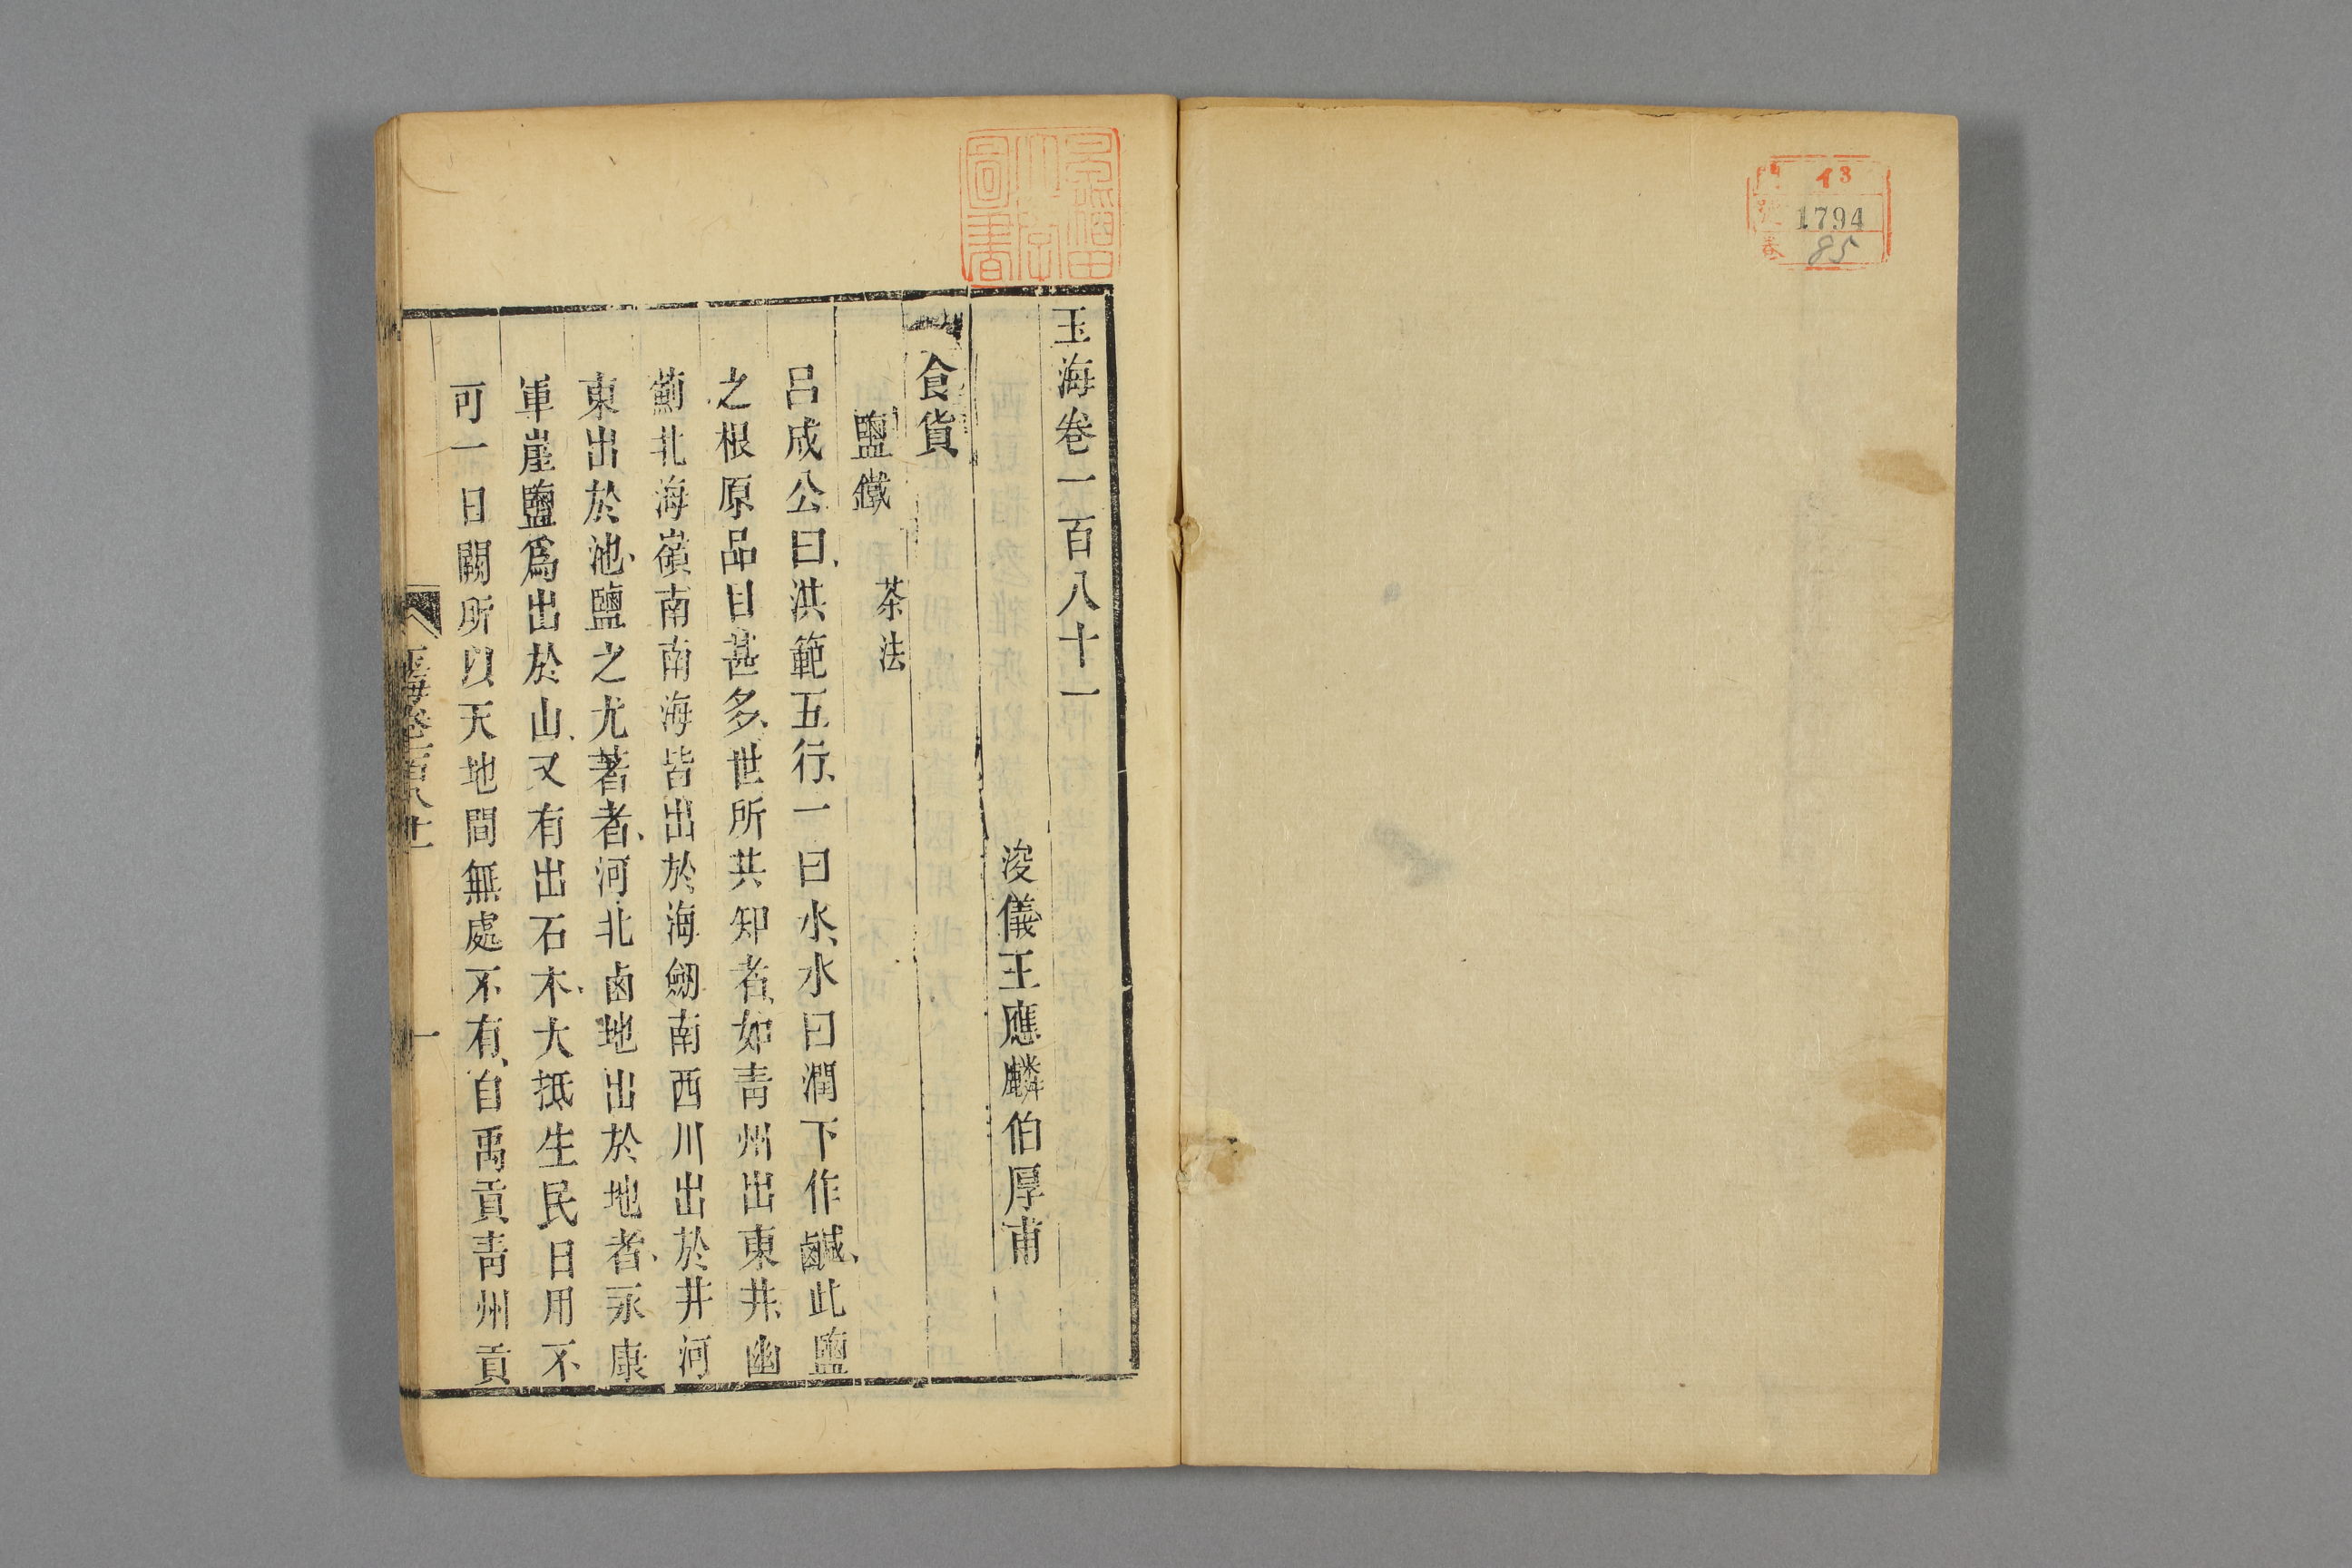 門 イ3
號 1794
卷 85
玉海卷一百八十一
浚儀王應麟伯厚甫
食貨
鹽鐵 茶法
呂成公曰洪範五行一曰水水曰潤下作鹹此鹽
之根原品目甚多世所共知者如青州出東井幽
薊北海嶺南南海皆出於海劒南西川出於井河
東出於池鹽之尤著者河北鹵地出於地者永康
軍崖鹽爲出於山又有出石木大抵生民日用不
可一日闕所以天地間無處不有自禹貢青州貢
玉海卷一百八十一
一